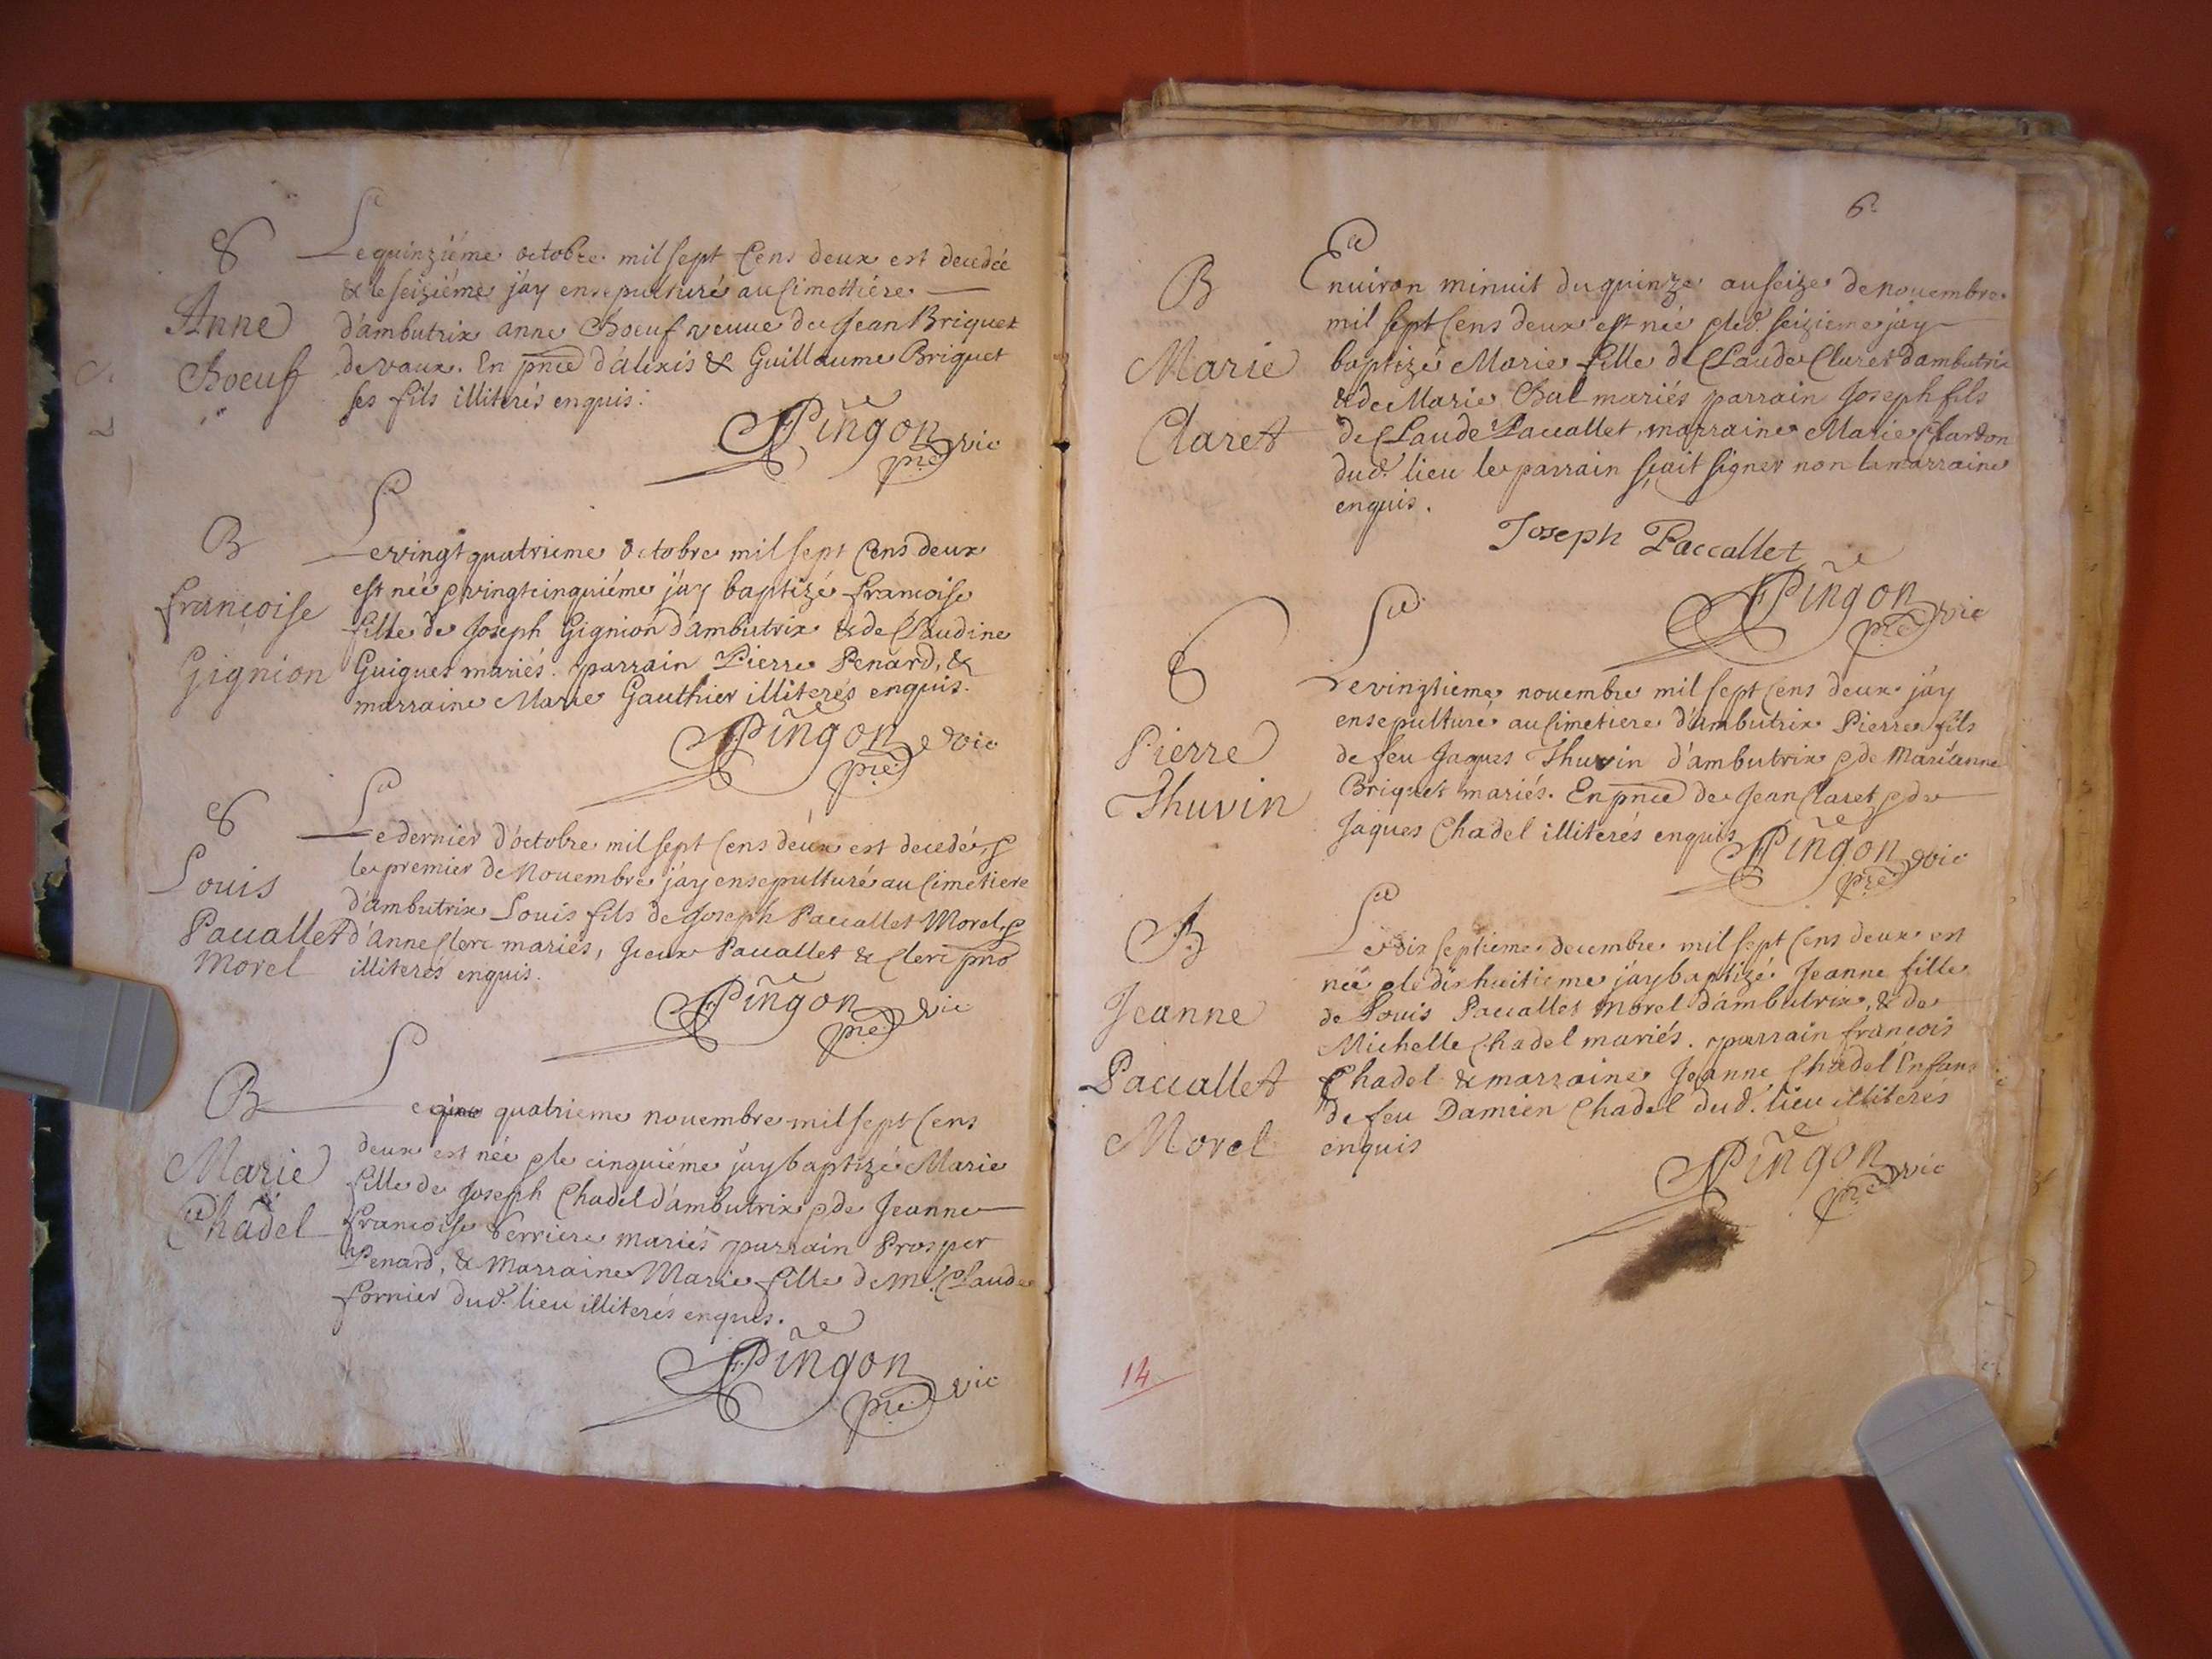 8
Anne
Boeuf
Le quinziéme octobre mil sept Cens deux est decedée
& le seiziéme jáy ensepulturé au Cimettiére
d'ambutrix anne Boeuf veuue de Jean Briquet
de vaux. En pnce d'alexis & Guillaume Briquet
ses fils illiterés enquis.
Pingon
pre vic
B
françoise
Gignion
Le vingt quatrieme octobre mil sept Cens deux
est née & vingtcinquiéme jáy baptizé francoise
fille de Joseph Gignion d'ambutrix & de Claudine
Guigues mariés. parrain Pierre Penard, &
marraine Marie Gauthier illiterés enquis.
Pingon
pre vic
8
Louis
Pauallet
Morel
Le dernier d'octobre mil sept Cens deux est decedé, &
le premier de Nouembre jáy ensepulturé au Cimetiere
d'ambutrix Louis fils de Joseph Pauallet Morel, &
d'Anne Clerc mariés, Iceux Pauallet & Clerc pns
illiterés enquis.
Pingon
pre vic
B
Marie
Chadel
Le quatrieme nouembre mil sept Cens
deux est née & le cinquiéme jay baptizé Marie
fille de Joseph Chadel d'ambutrix & de Jeanne
francoise Verriere mariés parrain Prosper
Penard, & Marraine Marie fille de Mr. Claude
fornier dud. lieu illiterés enquis.
Pingon
pre vic
6
B
Marie
Claret
Enuiron minuit du quinze au seize de nouembre
mil sept Cens deux est née & led. seizieme jáy
baptizé Marie fille de Claude Claret d'ambutrix
& de Marie Bal mariés parrain Joseph fils
de Claude Paccallet, marraine Marie Chardon
dud. lieu le parrain sçait signer non la marraine
enquis.
Joseph Paccallet
Pingon
pre vic
8
Pierre
Thuvin
Le vingtieme nouembre mil sept Cens deux jáy
ensepulturé au Cimetiere d'ambutrix Pierre fils
de feu Jaques Thuvin d'ambutrix & de Marianne
Briquet mariés. En pnce de Jean Claret & de
Jaques Chadel illiterés enquis
Pingon
pre vic
B
Jeanne
Pauallet
Morel
Le dix septieme decembre mil sept Cens deux est
née & le dix huitieme jáy baptizé Jeanne fille
de Louis Pauallet Morel d'ambutrix, & de
Michelle Chadel mariés. parrain françois
Chadel & marraine Jeanne Chadel Enfans
de feu Damien Chadel dud. lieu illiterés
enquis
Pingon
pre vic
14